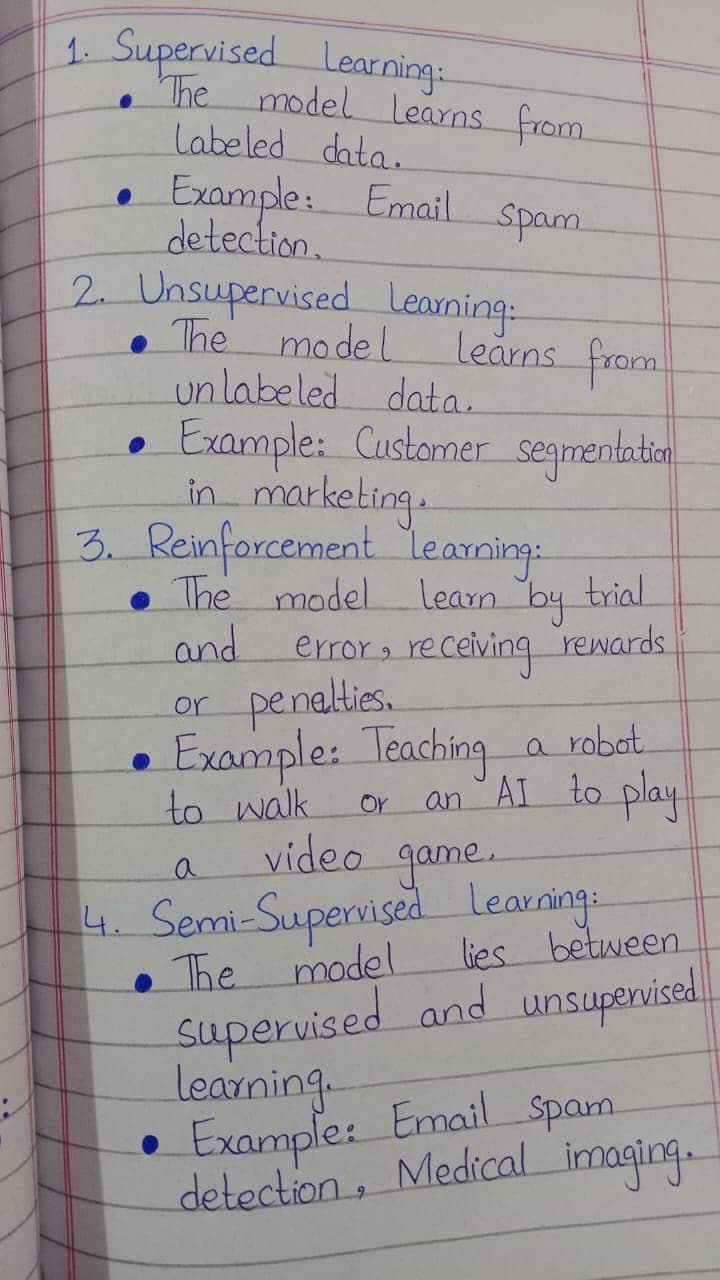 1. Supervised Learning:
• The model learns from
labeled data.
• Example: Email spam
detection.
2. Unsupervised Learning:
• The model learns from
unlabeled data.
• Example: Customer segmentation
in marketing.
3. Reinforcement learning:
• The model learn by trial
and error, receiving rewards
or penalties.
• Example: Teaching a robot
to walk or an AI to play
a video game.
4. Semi-Supervised Learning:
• The model lies between
supervised and unsupervised
learning.
• Example: Email spam
detection, Medical imaging.